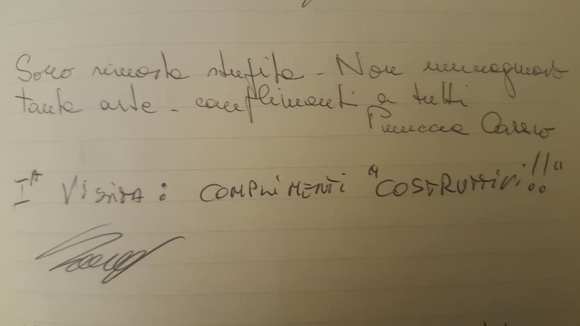 Sono rimasta stupita - Non immaginavo
tanta arte - complimenti a tutti
I^A VISITA : COMPLIMENTI "COSTRUTTIVI!!"